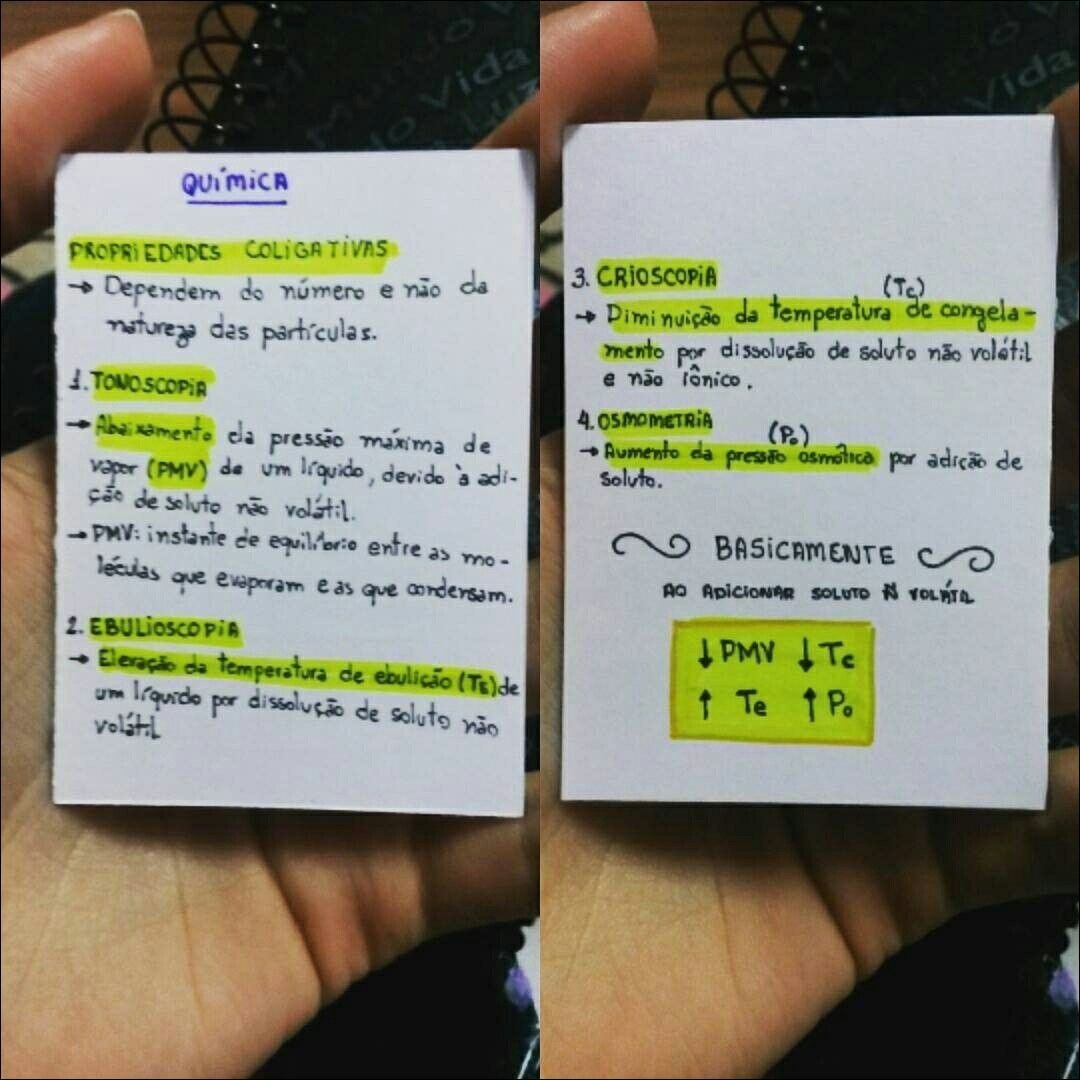 Vida
QUÍMICA
PROPRIEDADES COLIGATIVAS
→ Dependem do número e não da
natureza das partículas.
1. TONOSCOPIA
→ Abaixamento da pressão máxima de
vapor (PMV) de um líquido, devido à adi-
ção de soluto não volátil.
→ PMV: instante de equilíbrio entre as mo-
léculas que evaporam e as que condensam.
2. EBULIOSCOPIA
→ Elevação da temperatura de ebulição (TE) de
um líquido por dissolução de soluto não
volátil
Mundo V
do Vida
Luz
3. CRIOSCOPIA
(Tc)
→ Diminuição da temperatura de congela-
mento por dissolução de soluto não volátil
e não iônico.
4. OSMOMETRIA
(Po)
→ Aumento da pressão osmótica por adição de
soluto.
BASICAMENTE
AO ADICIONAR SOLUTO Ñ VOLÁTIL
↓ PMV ↓ Tc
↑ Te ↑ Po